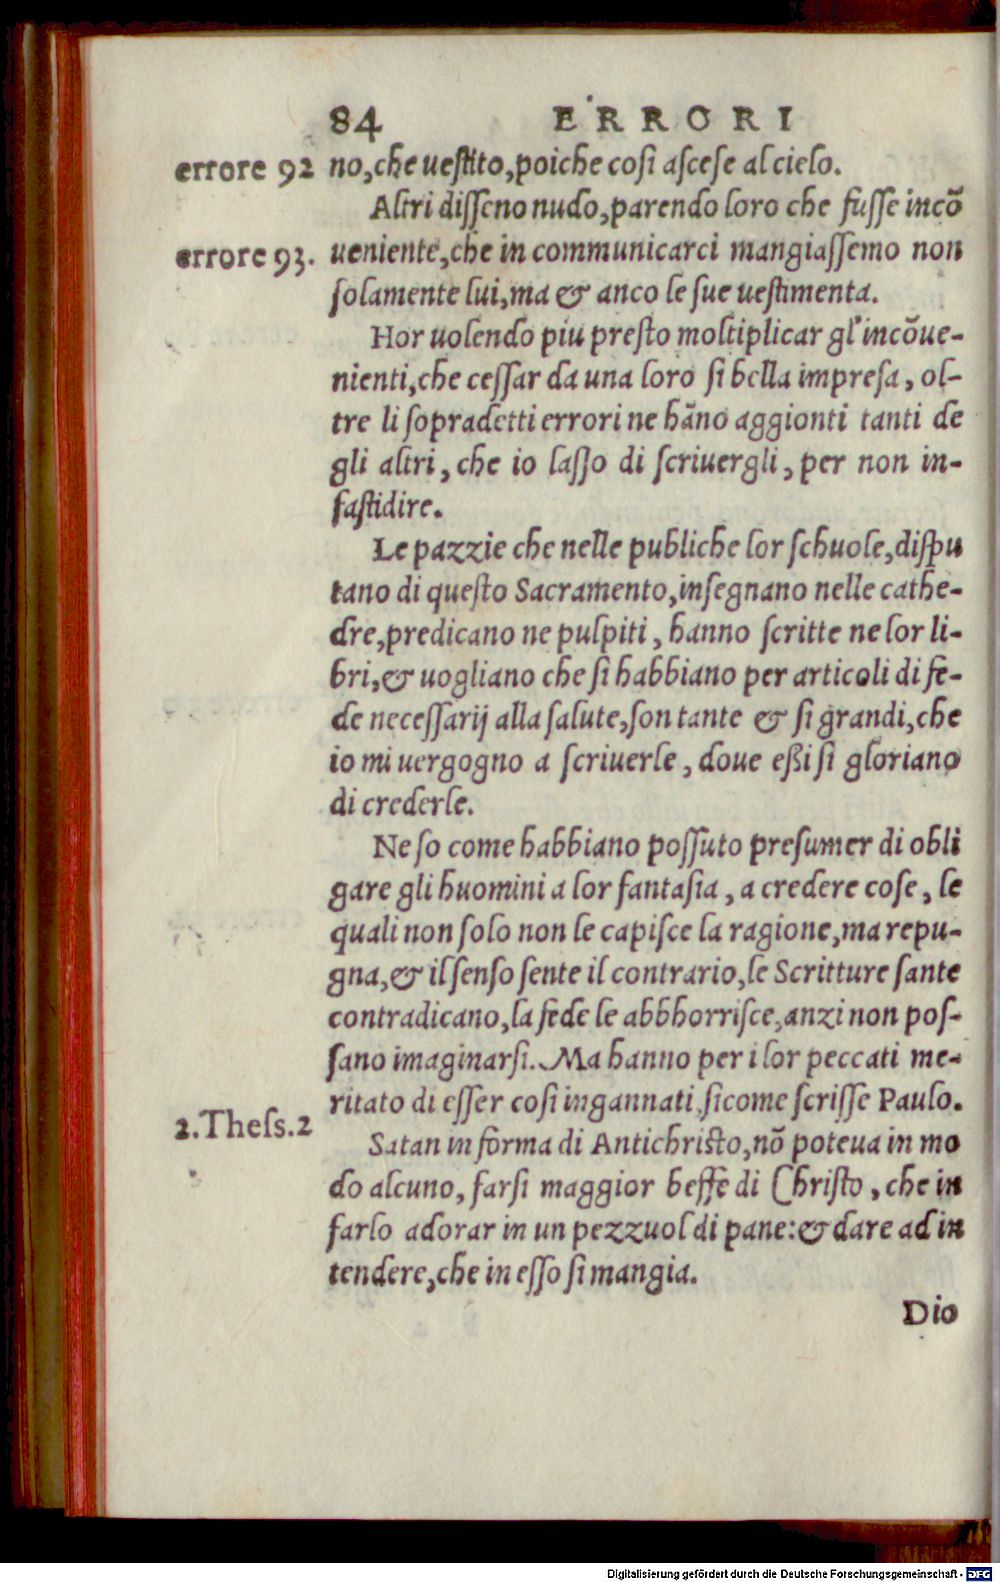 84 ERRORI
errore 92 no,che uestito,poiche cosi ascese al cielo.
Altri disseno nudo,parendo loro che fusse incō
errore 93. ueniente,che in communicarci mangiassemo non
solamente lui,ma & anco le sue uestimenta.
Hor uolendo piu presto moltiplicar gl'incōue-
nienti,che cessar da una loro si bella impresa, ol-
tre li sopradetti errori ne hāno aggionti tanti de
gli altri, che io lasso di scriuergli, per non in-
fastidire.
Le pazzie che nelle publiche lor schuole,dispu
tano di questo Sacramento,insegnano nelle cathe-
dre,predicano ne pulpiti, hanno scritte ne lor li-
bri,& uogliano che si habbiano per articoli di fe-
de necessarij alla salute,son tante & si grandi,che
io mi uergogno a scriuerle, doue eßi si gloriano
di crederle.
Ne so come habbiano possuto presumer di obli
gare gli huomini a lor fantasia, a credere cose, le
quali non solo non le capisce la ragione,ma repu-
gna,& il senso sente il contrario,le Scritture sante
contradicano,la fede le abbhorrisce,anzi non pos-
sano imaginarsi. Ma hanno per i lor peccati me-
ritato di esser cosi ingannati,sicome scrisse Paulo.
2.Thess.2
Satan in forma di Antichristo,nō poteua in mo
do alcuno, farsi maggior beffe di Christo, che in
farlo adorar in un pezzuol di pane:& dare ad in
tendere,che in esso si mangia.
Dio
Digitalisierung gefördert durch die Deutsche Forschungsgemeinschaft - DFG